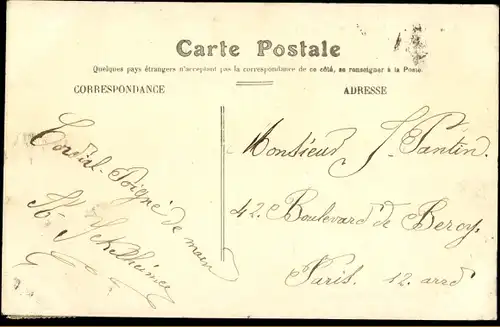 Carte Postale
Quelques pays étrangers n'acceptant pas la correspondance de ce côté, se renseigner à la Poste.
CORRESPONDANCE
ADRESSE
Cordial Poigné de main
Monsieur J. Pantin
42. Boulevard de Bercy.
Paris. 12. arrd